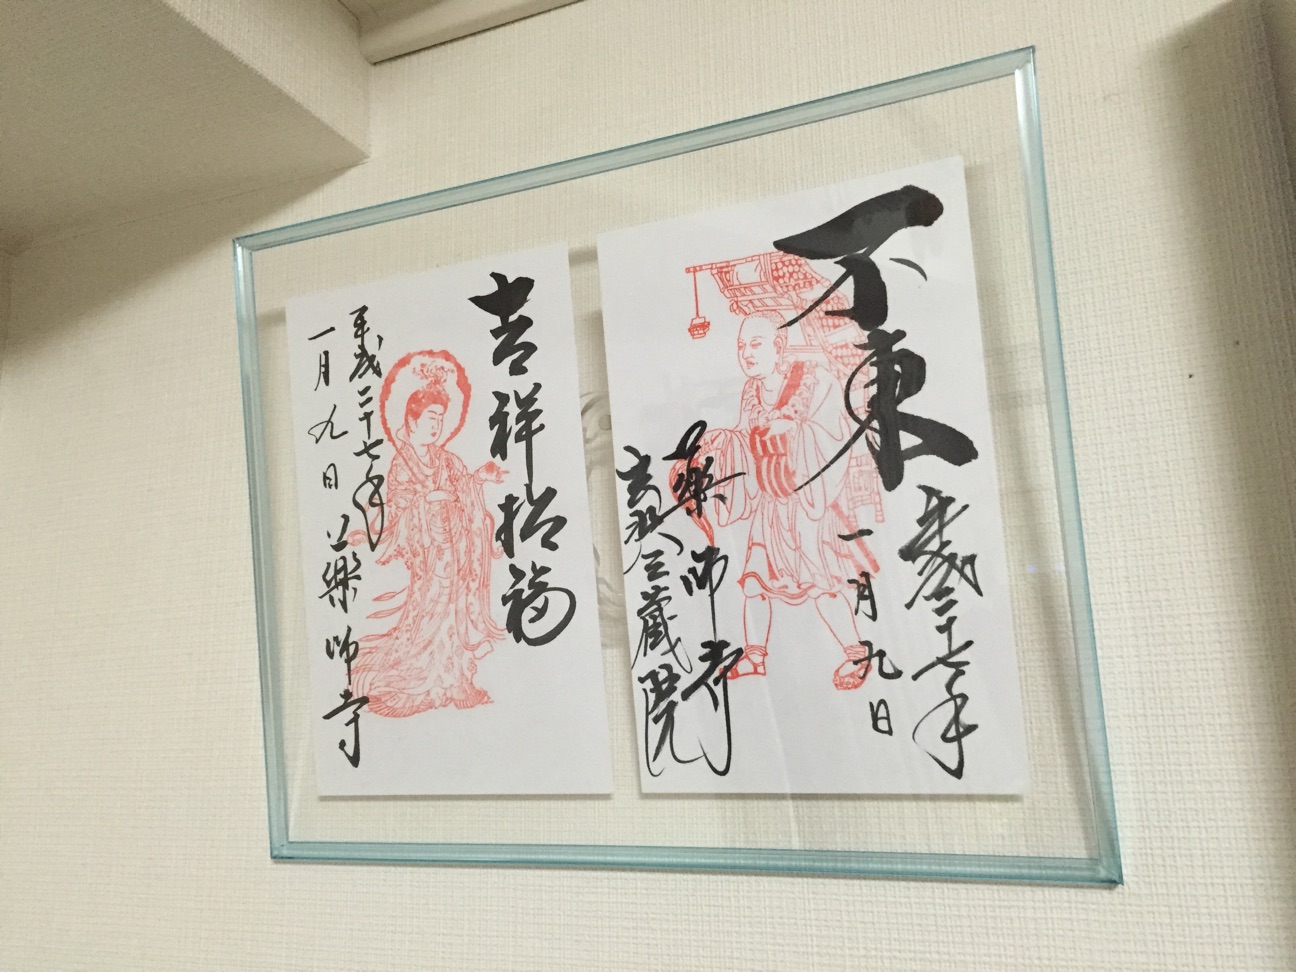 不東
平成二十七年
一月九日
薬師寺
玄奘三蔵院
吉祥招福
平成二十七年
一月九日 薬師寺